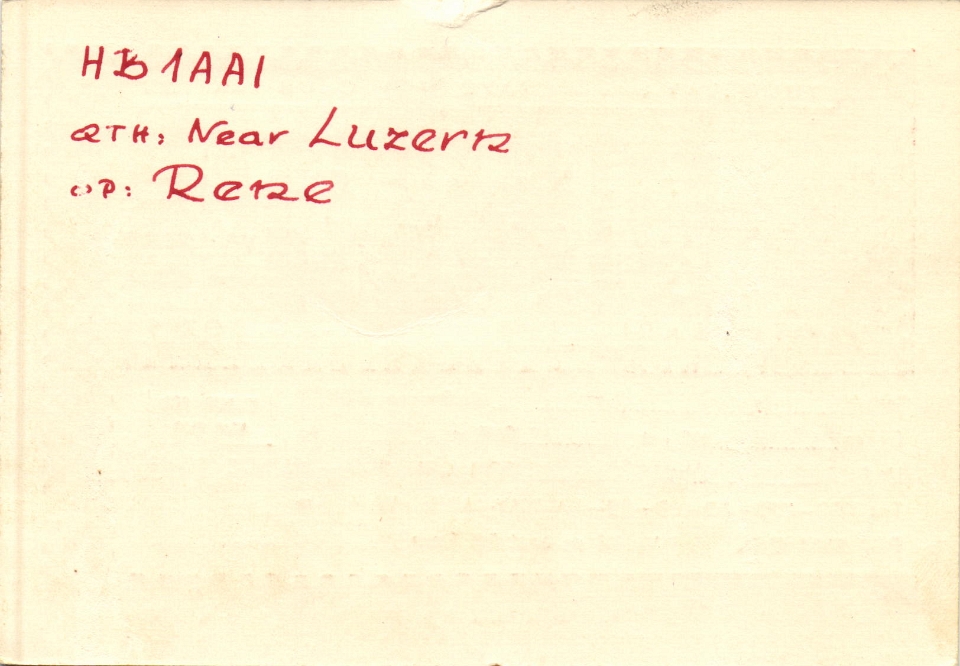 HB1AAI
QTH: Near Luzern
OP: Rene